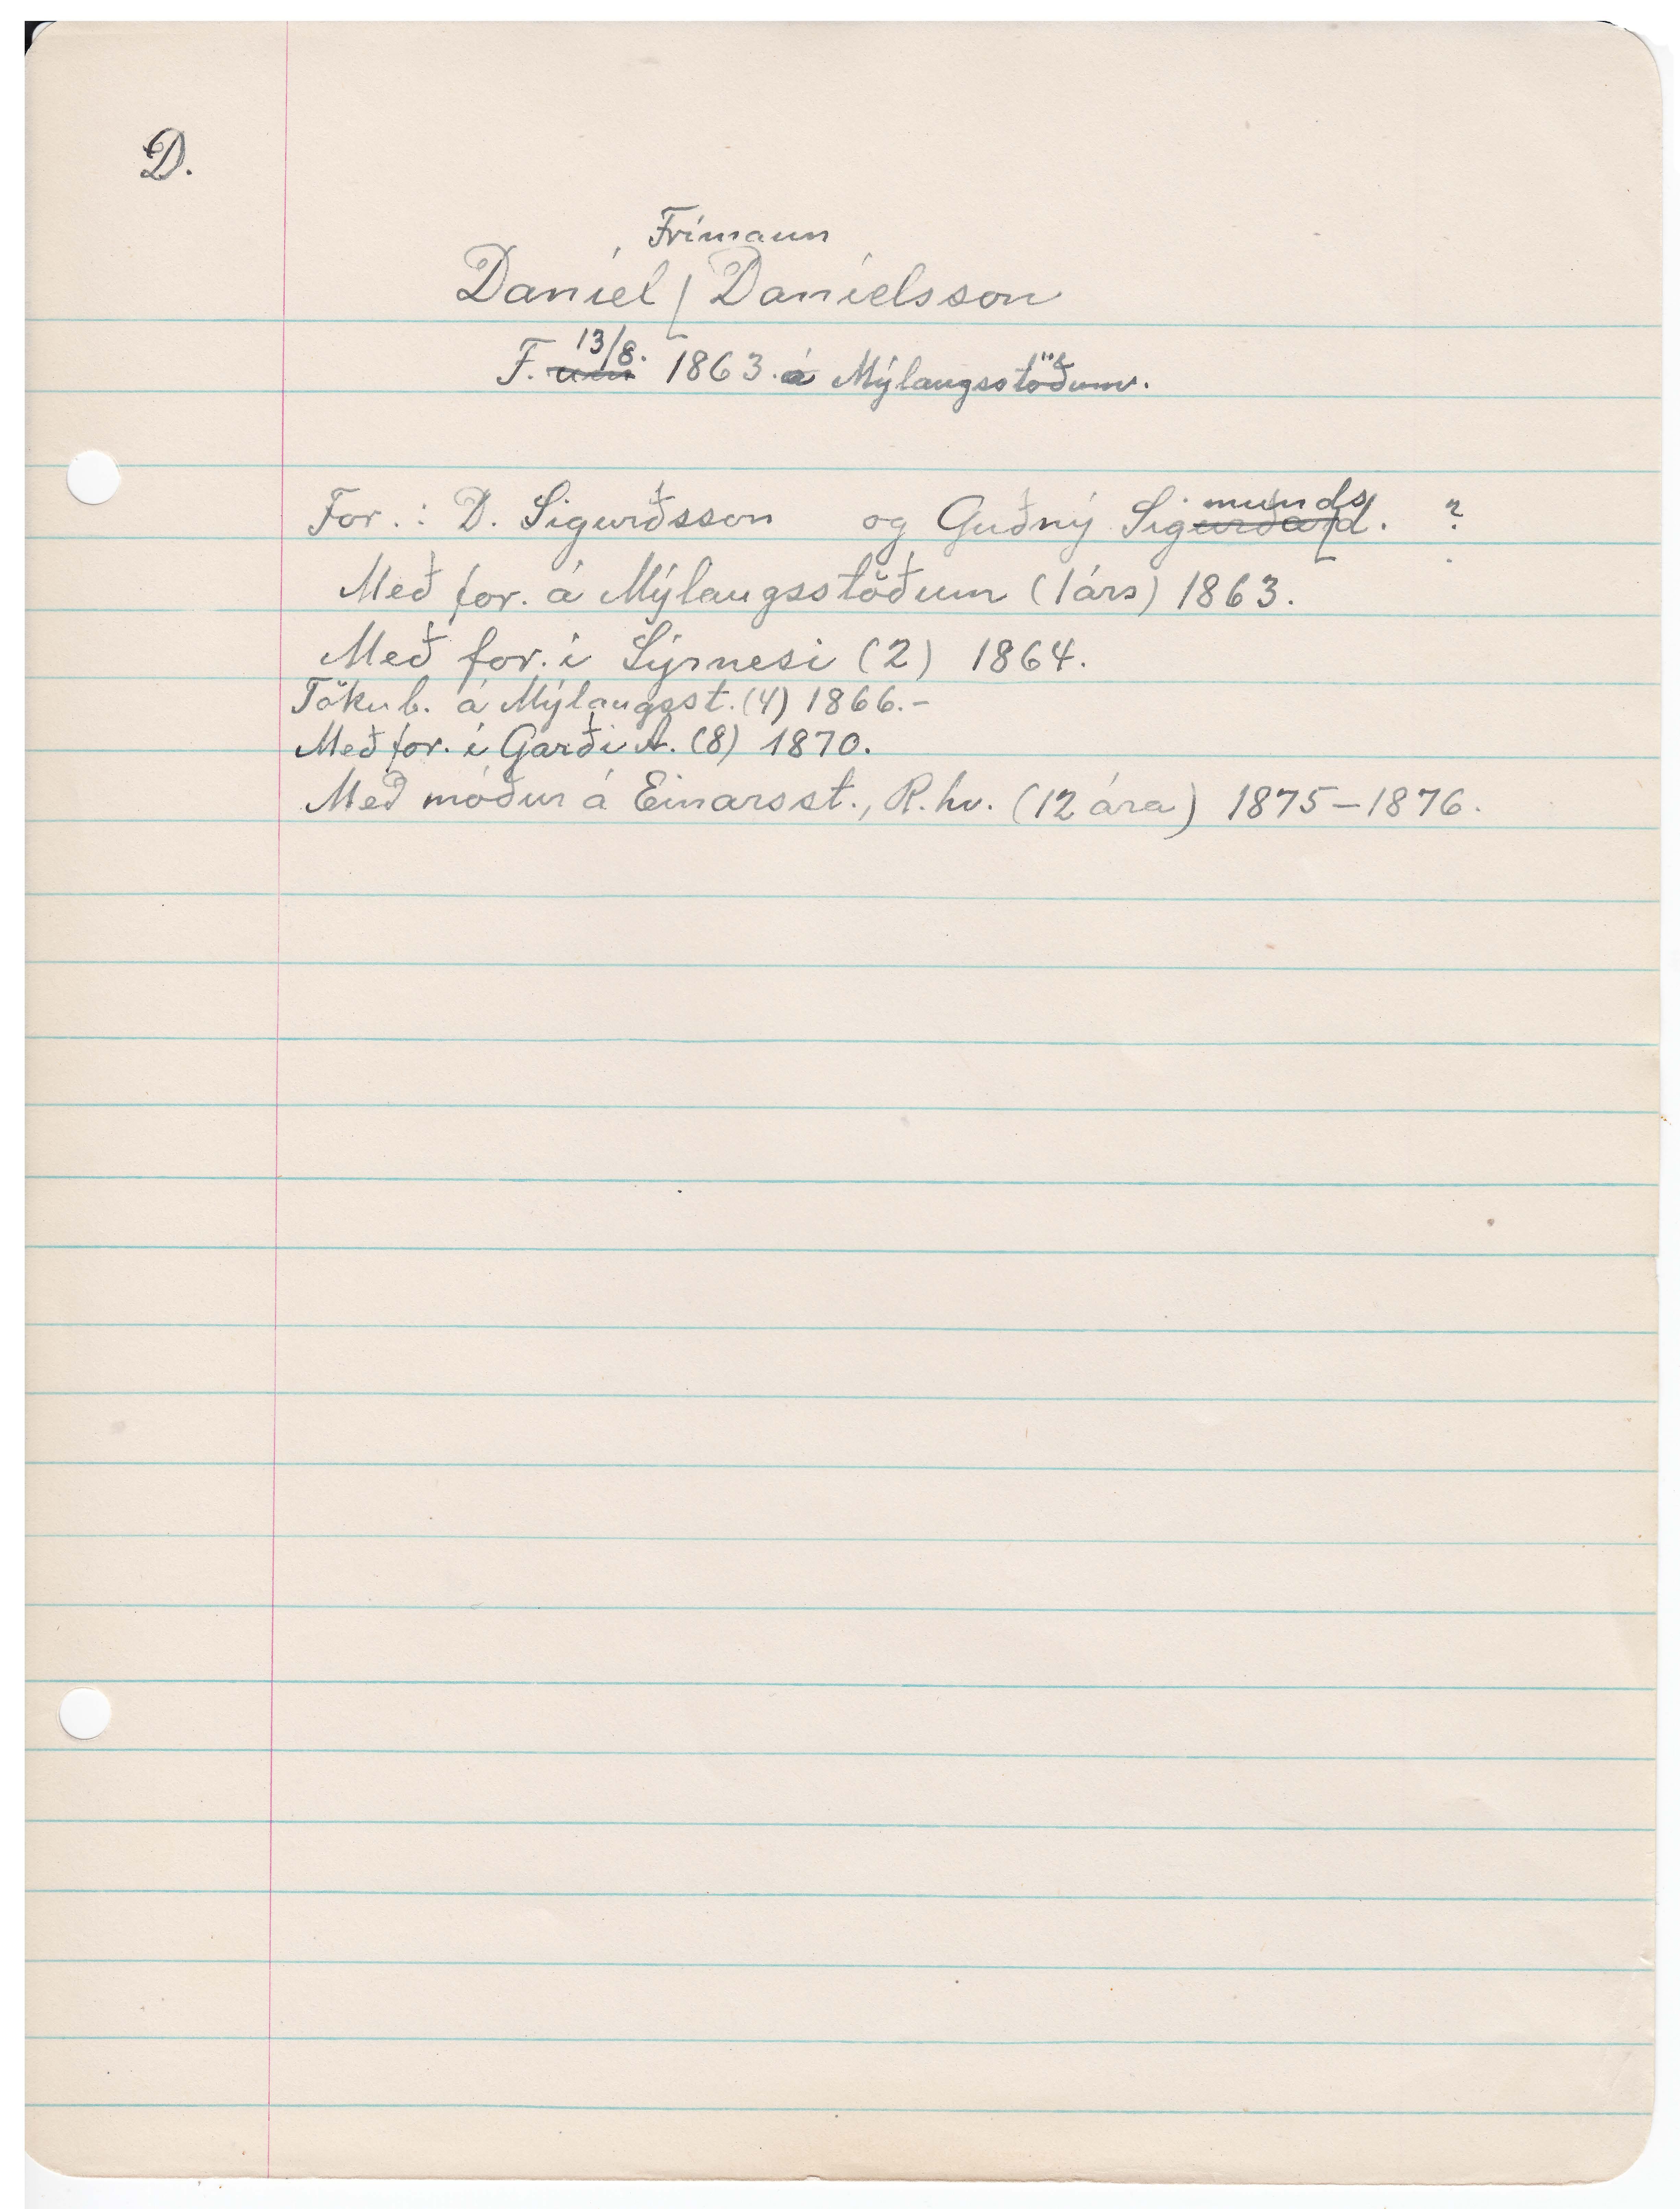 D.
Frímann
Daníel / Daníelsson
F. 13/8. 1863. á Mýlaugsstöðum.
For.: D. Sigurðsson og Guðný Sigmundsd. ?
Með for. á Mýlaugsstöðum (1árs) 1863.
Með for. í Sýrnesi (2) 1864.
Tökub. á Mýlaugsst. (4) 1866.-
Með for. í Garði A. (8) 1870.
Með móður á Einarsst., R.hv. (12 ára) 1875-1876.